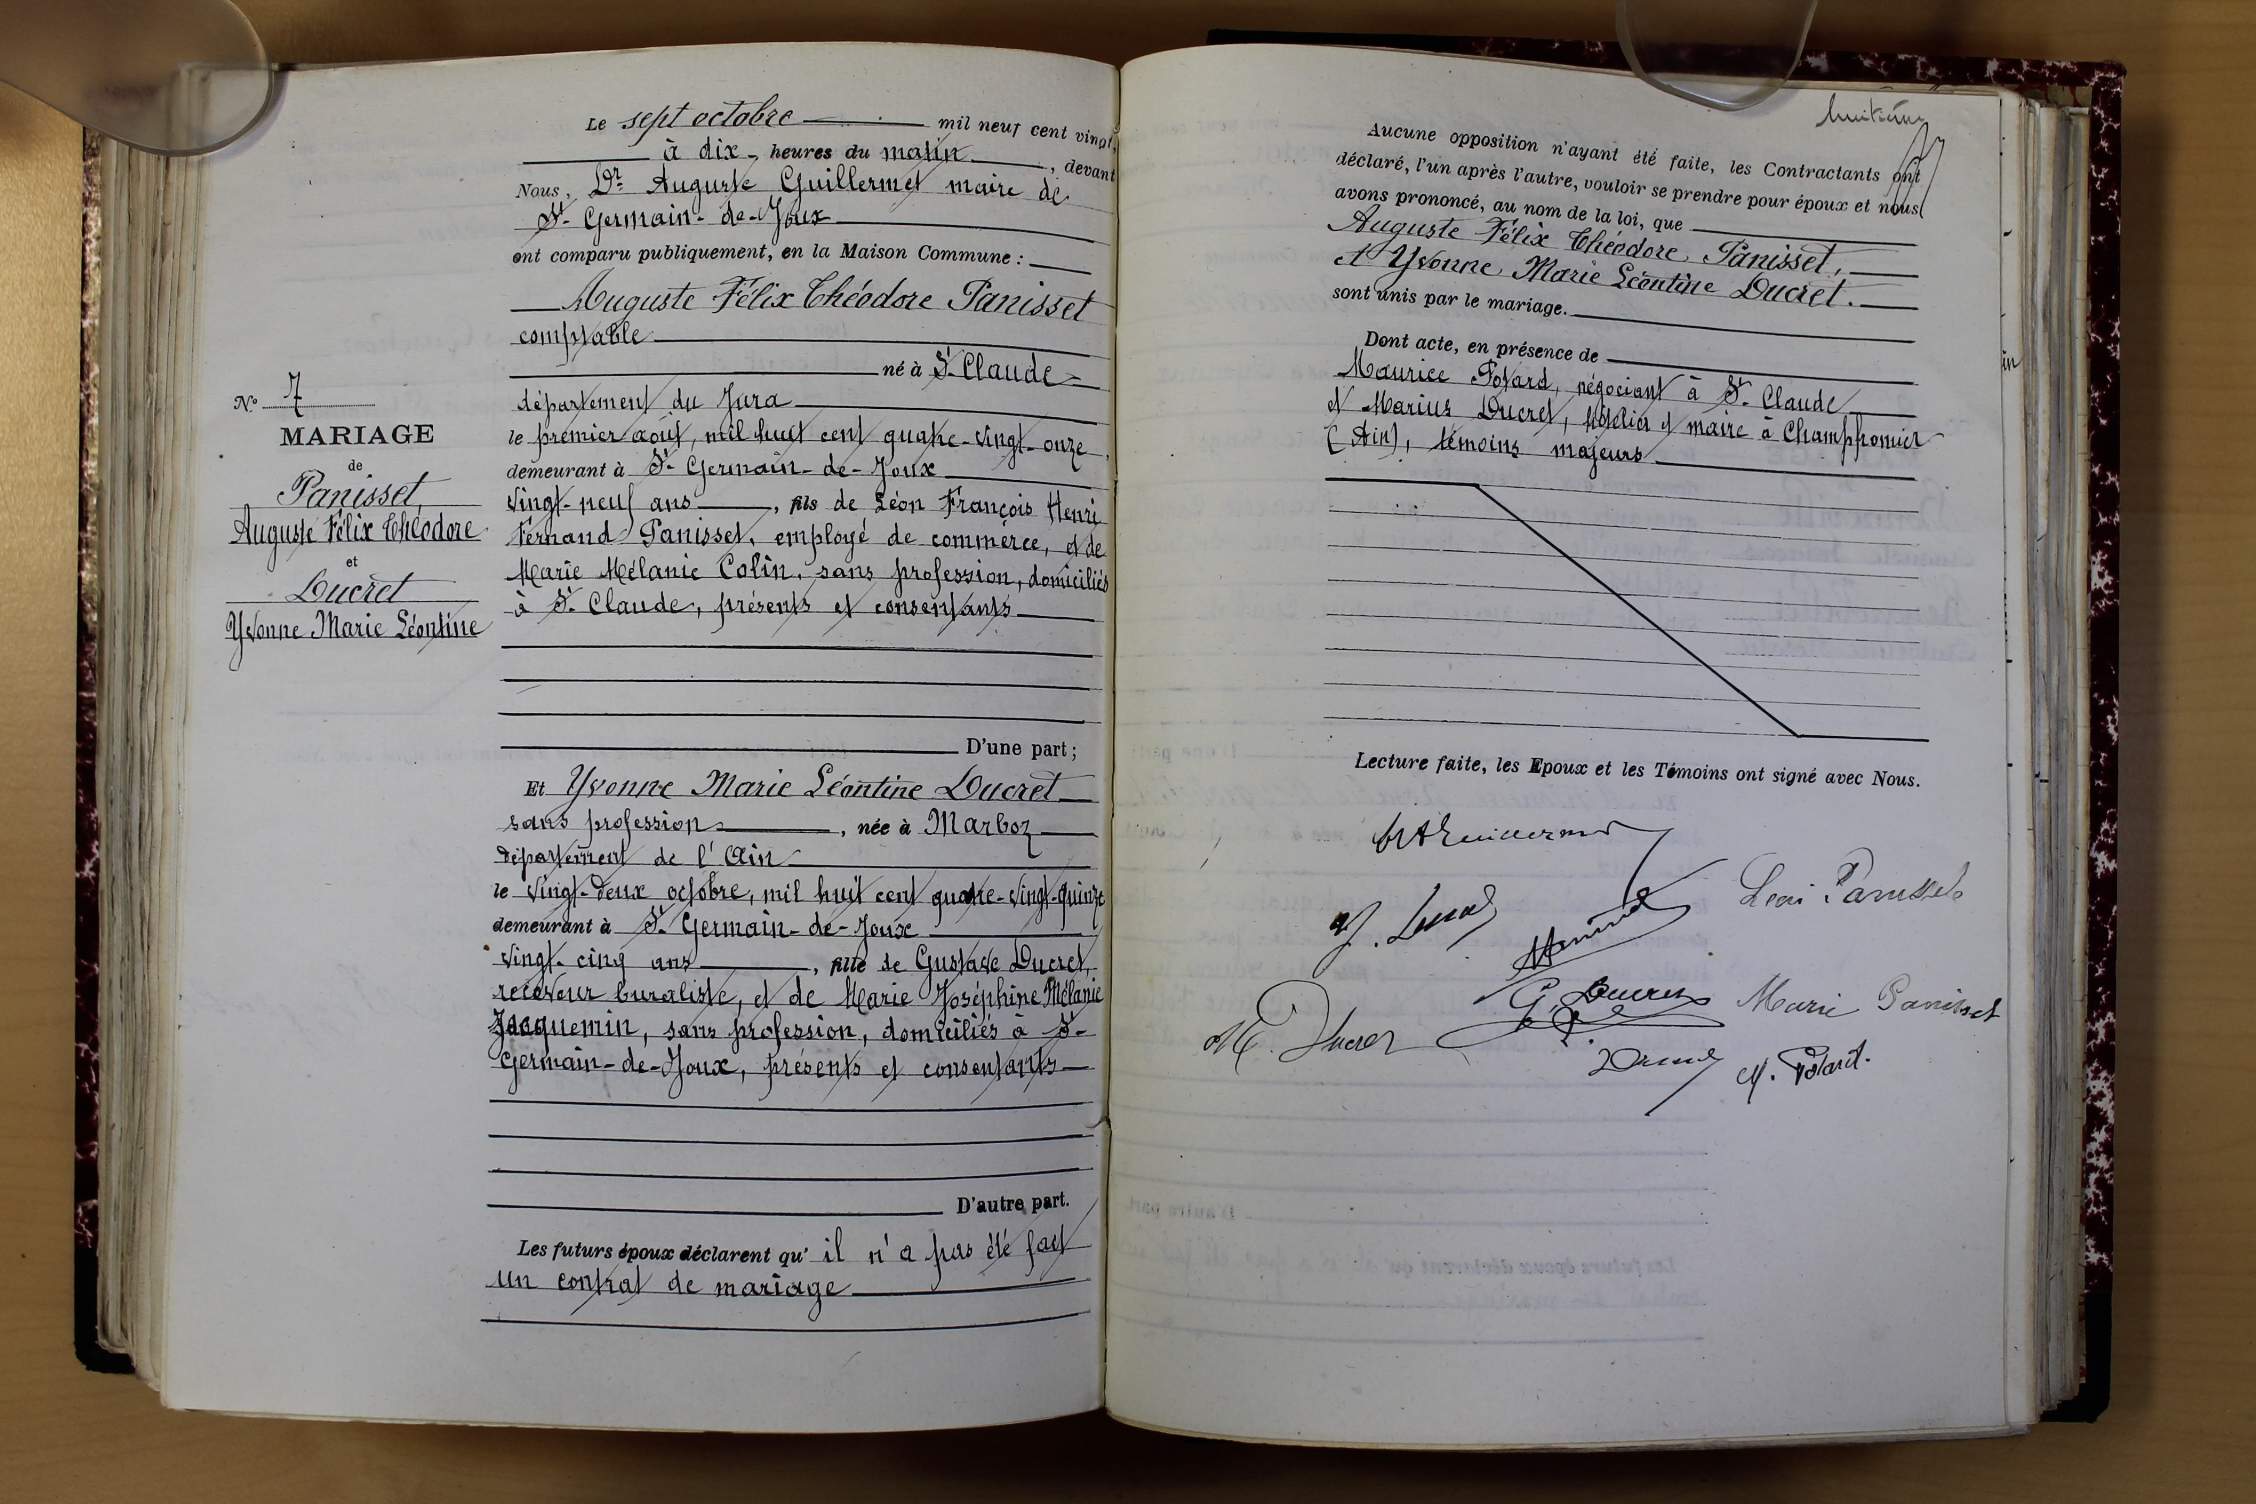 Le sept octobre mil neuf cent vingt,
à dix heures du matin, devant
Nous, Dr. Auguste Guillermet maire de
St. Germain-de-Joux
ont comparu publiquement, en la Maison Commune :
Auguste Félix Théodore Panisset
comptable
né à St. Claude
département du Jura
le premier août, mil huit cent quatre-vingt-onze,
demeurant à St. Germain-de-Joux
vingt-neuf ans, fils de Léon François Henri
Fernand Panisset, employé de commerce, et de
Marie Mélanie Colin, sans profession, domiciliés
à St. Claude, présents et consentants
D'une part ;
Et Yvonne Marie Léontine Ducret
sans profession, née à Marboz
département de l'Ain
le vingt-deux octobre, mil huit cent quatre-vingt-quinze
demeurant à St. Germain-de-Joux
vingt-cinq ans, fille de Gustave Ducret,
receveur buraliste, et de Marie Joséphine Mélanie
Jacquemin, sans profession, domiciliés à St.
Germain-de-Joux, présents et consentants
D'autre part.
Les futurs époux déclarent qu'il n'a pas été fait
un contrat de mariage
N° 7
MARIAGE
de
Panisset,
Auguste Félix Théodore
et
Ducret
Yvonne Marie Léontine
huitième
Aucune opposition n'ayant été faite, les Contractants ont
déclaré, l'un après l'autre, vouloir se prendre pour époux et nous
avons prononcé, au nom de la loi, que
Auguste Félix Théodore Panisset,
et Yvonne Marie Léontine Ducret.
sont unis par le mariage.
Dont acte, en présence de
Maurice Potard, négociant à St. Claude
et Marius Ducret, hôtelier et maire à Champfromier
(Ain), témoins majeurs
Lecture faite, les Epoux et les Témoins ont signé avec Nous.
Dr A Guillermet
Y. Ducret
Léon Panisset
G. Ducret
Marie Panisset
M. Ducret
M. Potard.